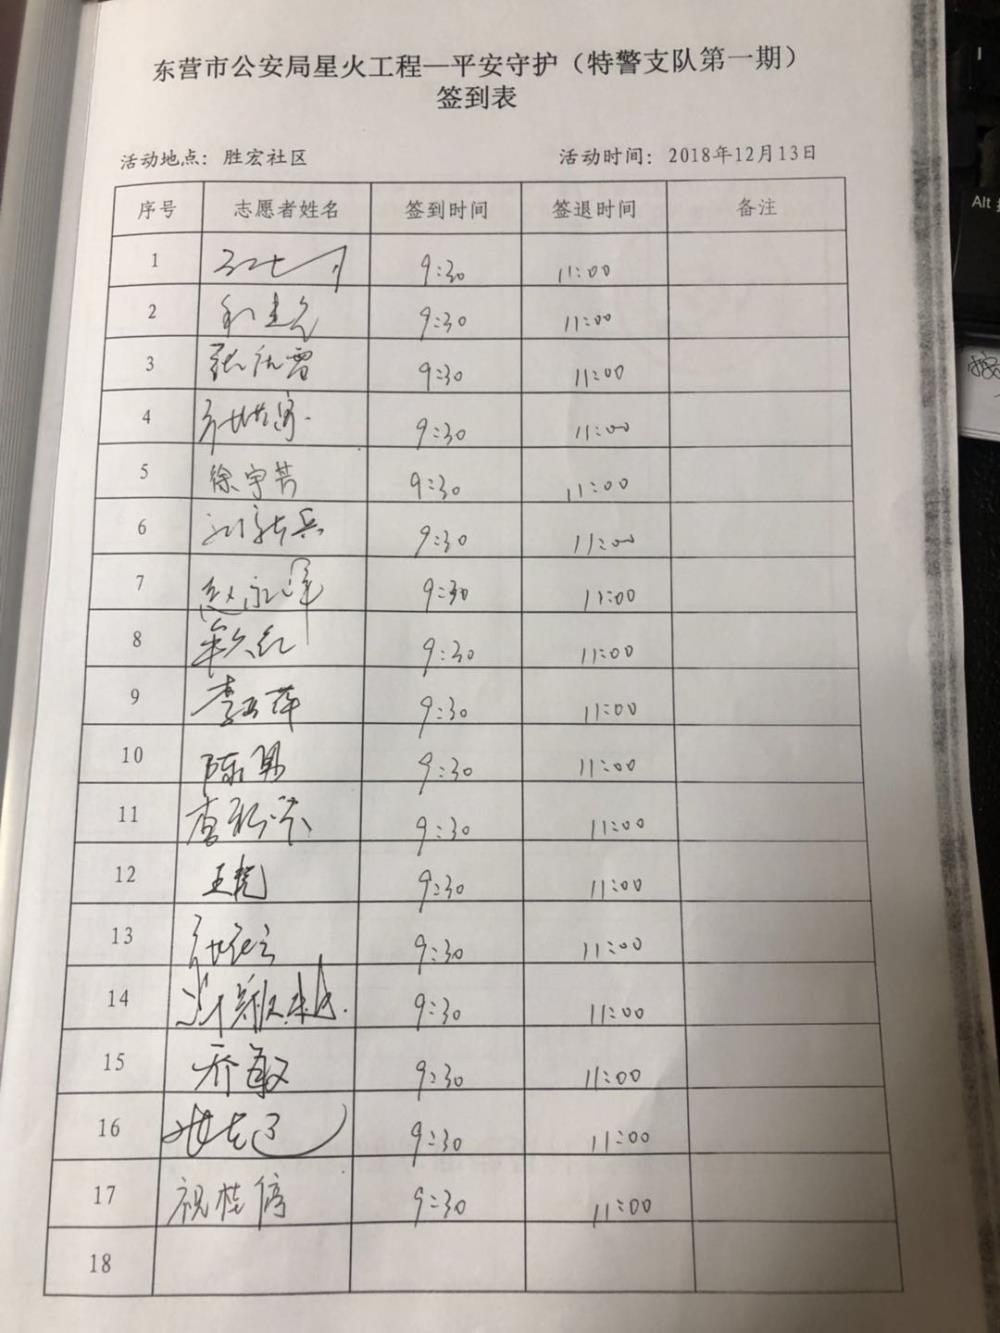 东营市公安局星火工程—平安守护（特警支队第一期）
签到表
活动地点：胜宏社区 活动时间：2018年12月13日
序号 志愿者姓名 签到时间 签退时间 备注
1 9:30 11:00
2 9:30 11:00
3 9:30 11:00
4 9:30 11:00
5 徐宇芳 9:30 11:00
6 9:30 11:00
7 赵永泽 9:30 11:00
8 9:30 11:00
9 李玉萍 9:30 11:00
10 陈男 9:30 11:00
11 9:30 11:00
12 王虎 9:30 11:00
13 9:30 11:00
14 9:30 11:00
15 乔敏 9:30 11:00
16 9:30 11:00
17 祝桂信 9:30 11:00
18
Alt